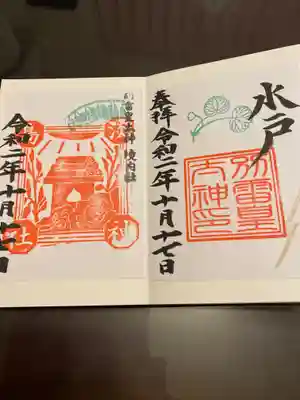 水戸
奉拝 令和二年十月十七日
別雷皇
太神印
別雷皇太神 境内社
令和二年十月十七日
神
社